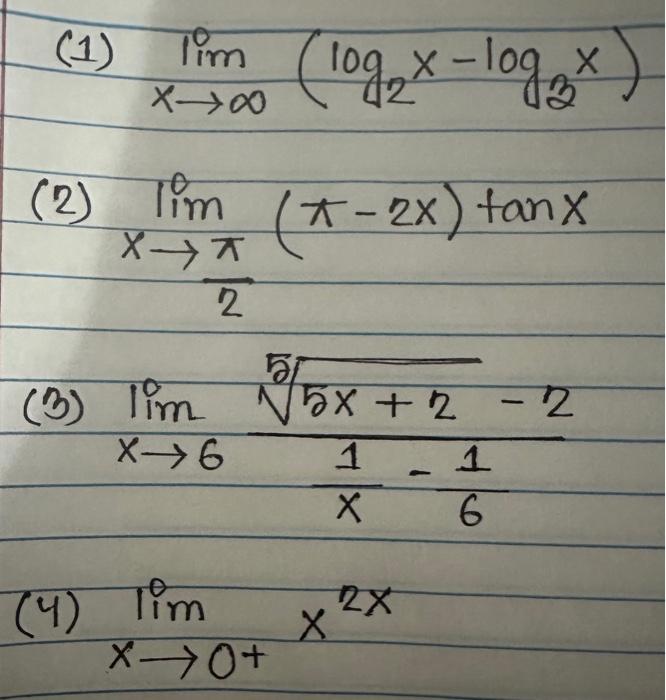 (1) lim x→∞ (log₂x − log₃x)
(2) lim x→π/2 (π − 2x) tanx
(3) lim x→6 (⁵√(5x + 2) − 2) / (1/x − 1/6)
(4) lim x→0+ x^2x